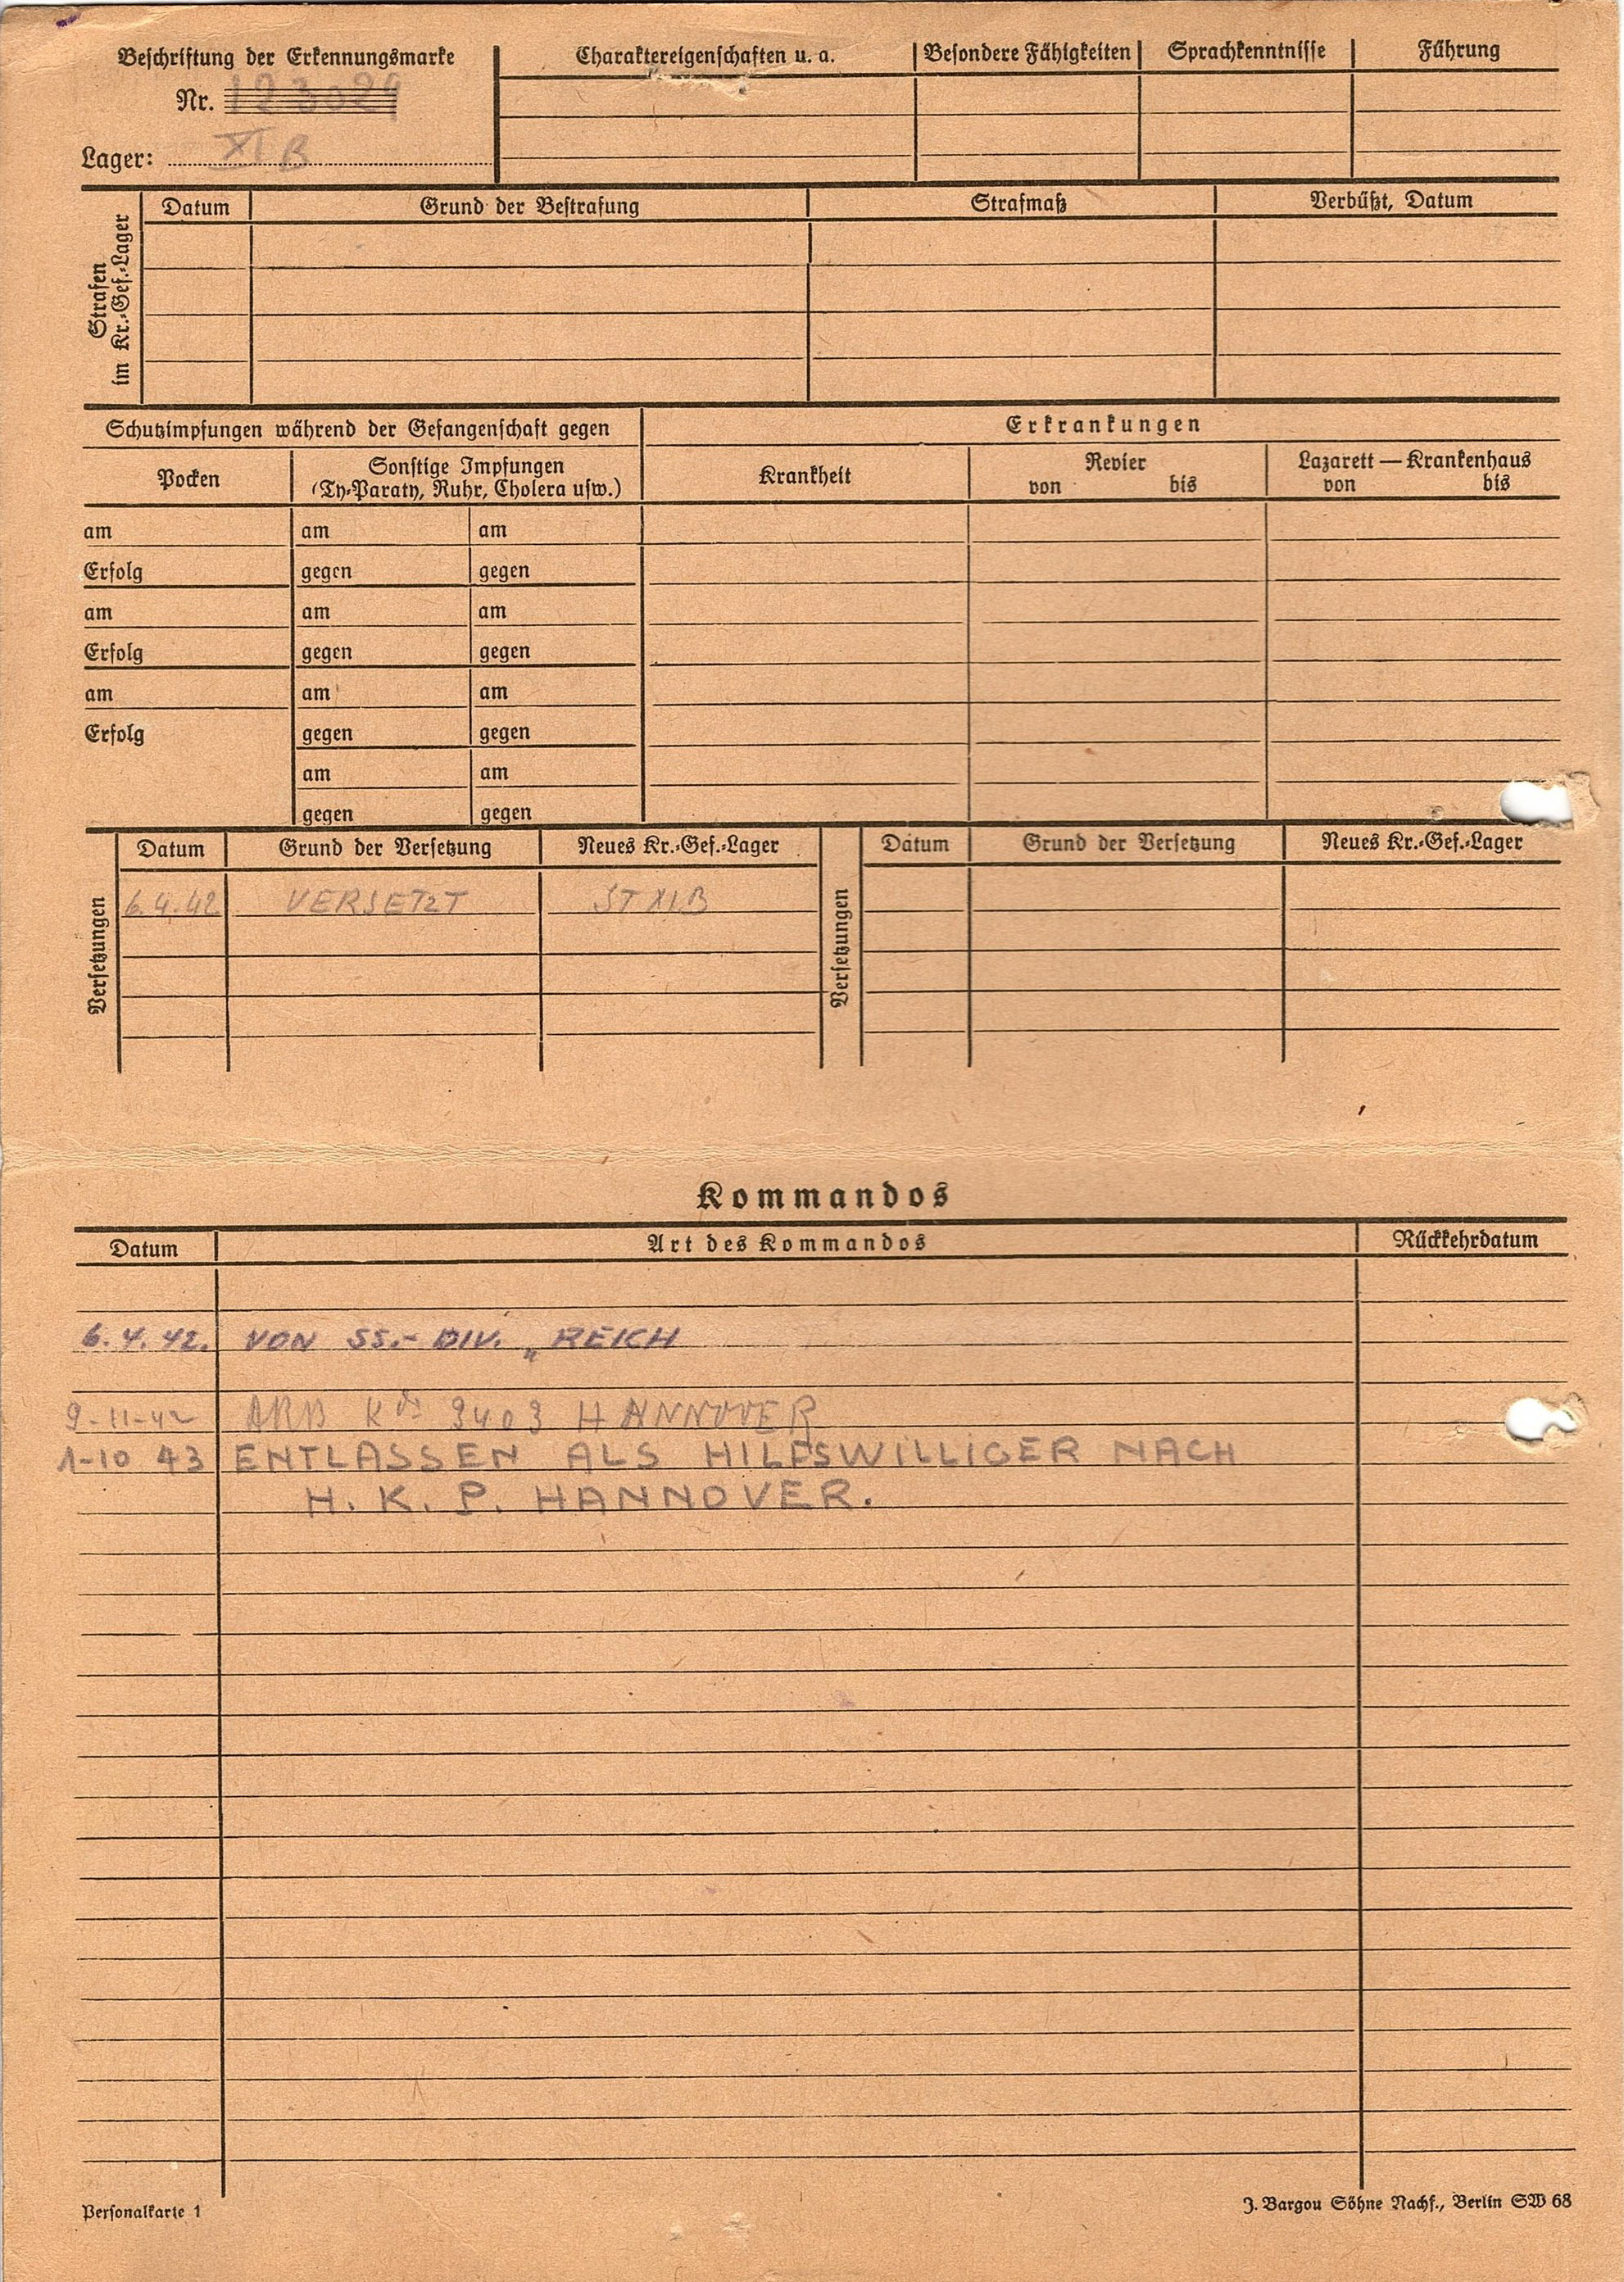 Beschriftung der Erkennungsmarke
Nr. 123029
Lager: XI B
Charaktereigenschaften u. a. Besondere Fähigkeiten Sprachkenntnisse Führung
Strafen im Kr.-Gef.-Lager
Datum Grund der Bestrafung Strafmaß Verbüßt, Datum
Schutzimpfungen während der Gefangenschaft gegen
Erkrankungen
Pocken
Sonstige Impfungen
(Ty-Paraty, Ruhr, Cholera usw.)
Krankheit
Revier
von bis
Lazarett — Krankenhaus
von bis
am am am
Erfolg gegen gegen
am am am
Erfolg gegen gegen
am am am
Erfolg gegen gegen
am am
gegen gegen
Versetzungen
Datum Grund der Versetzung Neues Kr.-Gef.-Lager
6.4.42 VERSETZT ST XI B
Versetzungen
Datum Grund der Versetzung Neues Kr.-Gef.-Lager
Kommandos
Datum Art des Kommandos Rückkehrdatum
6.4.42. VON SS.- DIV. „REICH
9-11-42 ARB Kdo 3403 HANNOVER
1-10 43 ENTLASSEN ALS HILFSWILLIGER NACH
H. K. P. HANNOVER.
Personalkarte 1
J. Bargou Söhne Nachf., Berlin SW 68